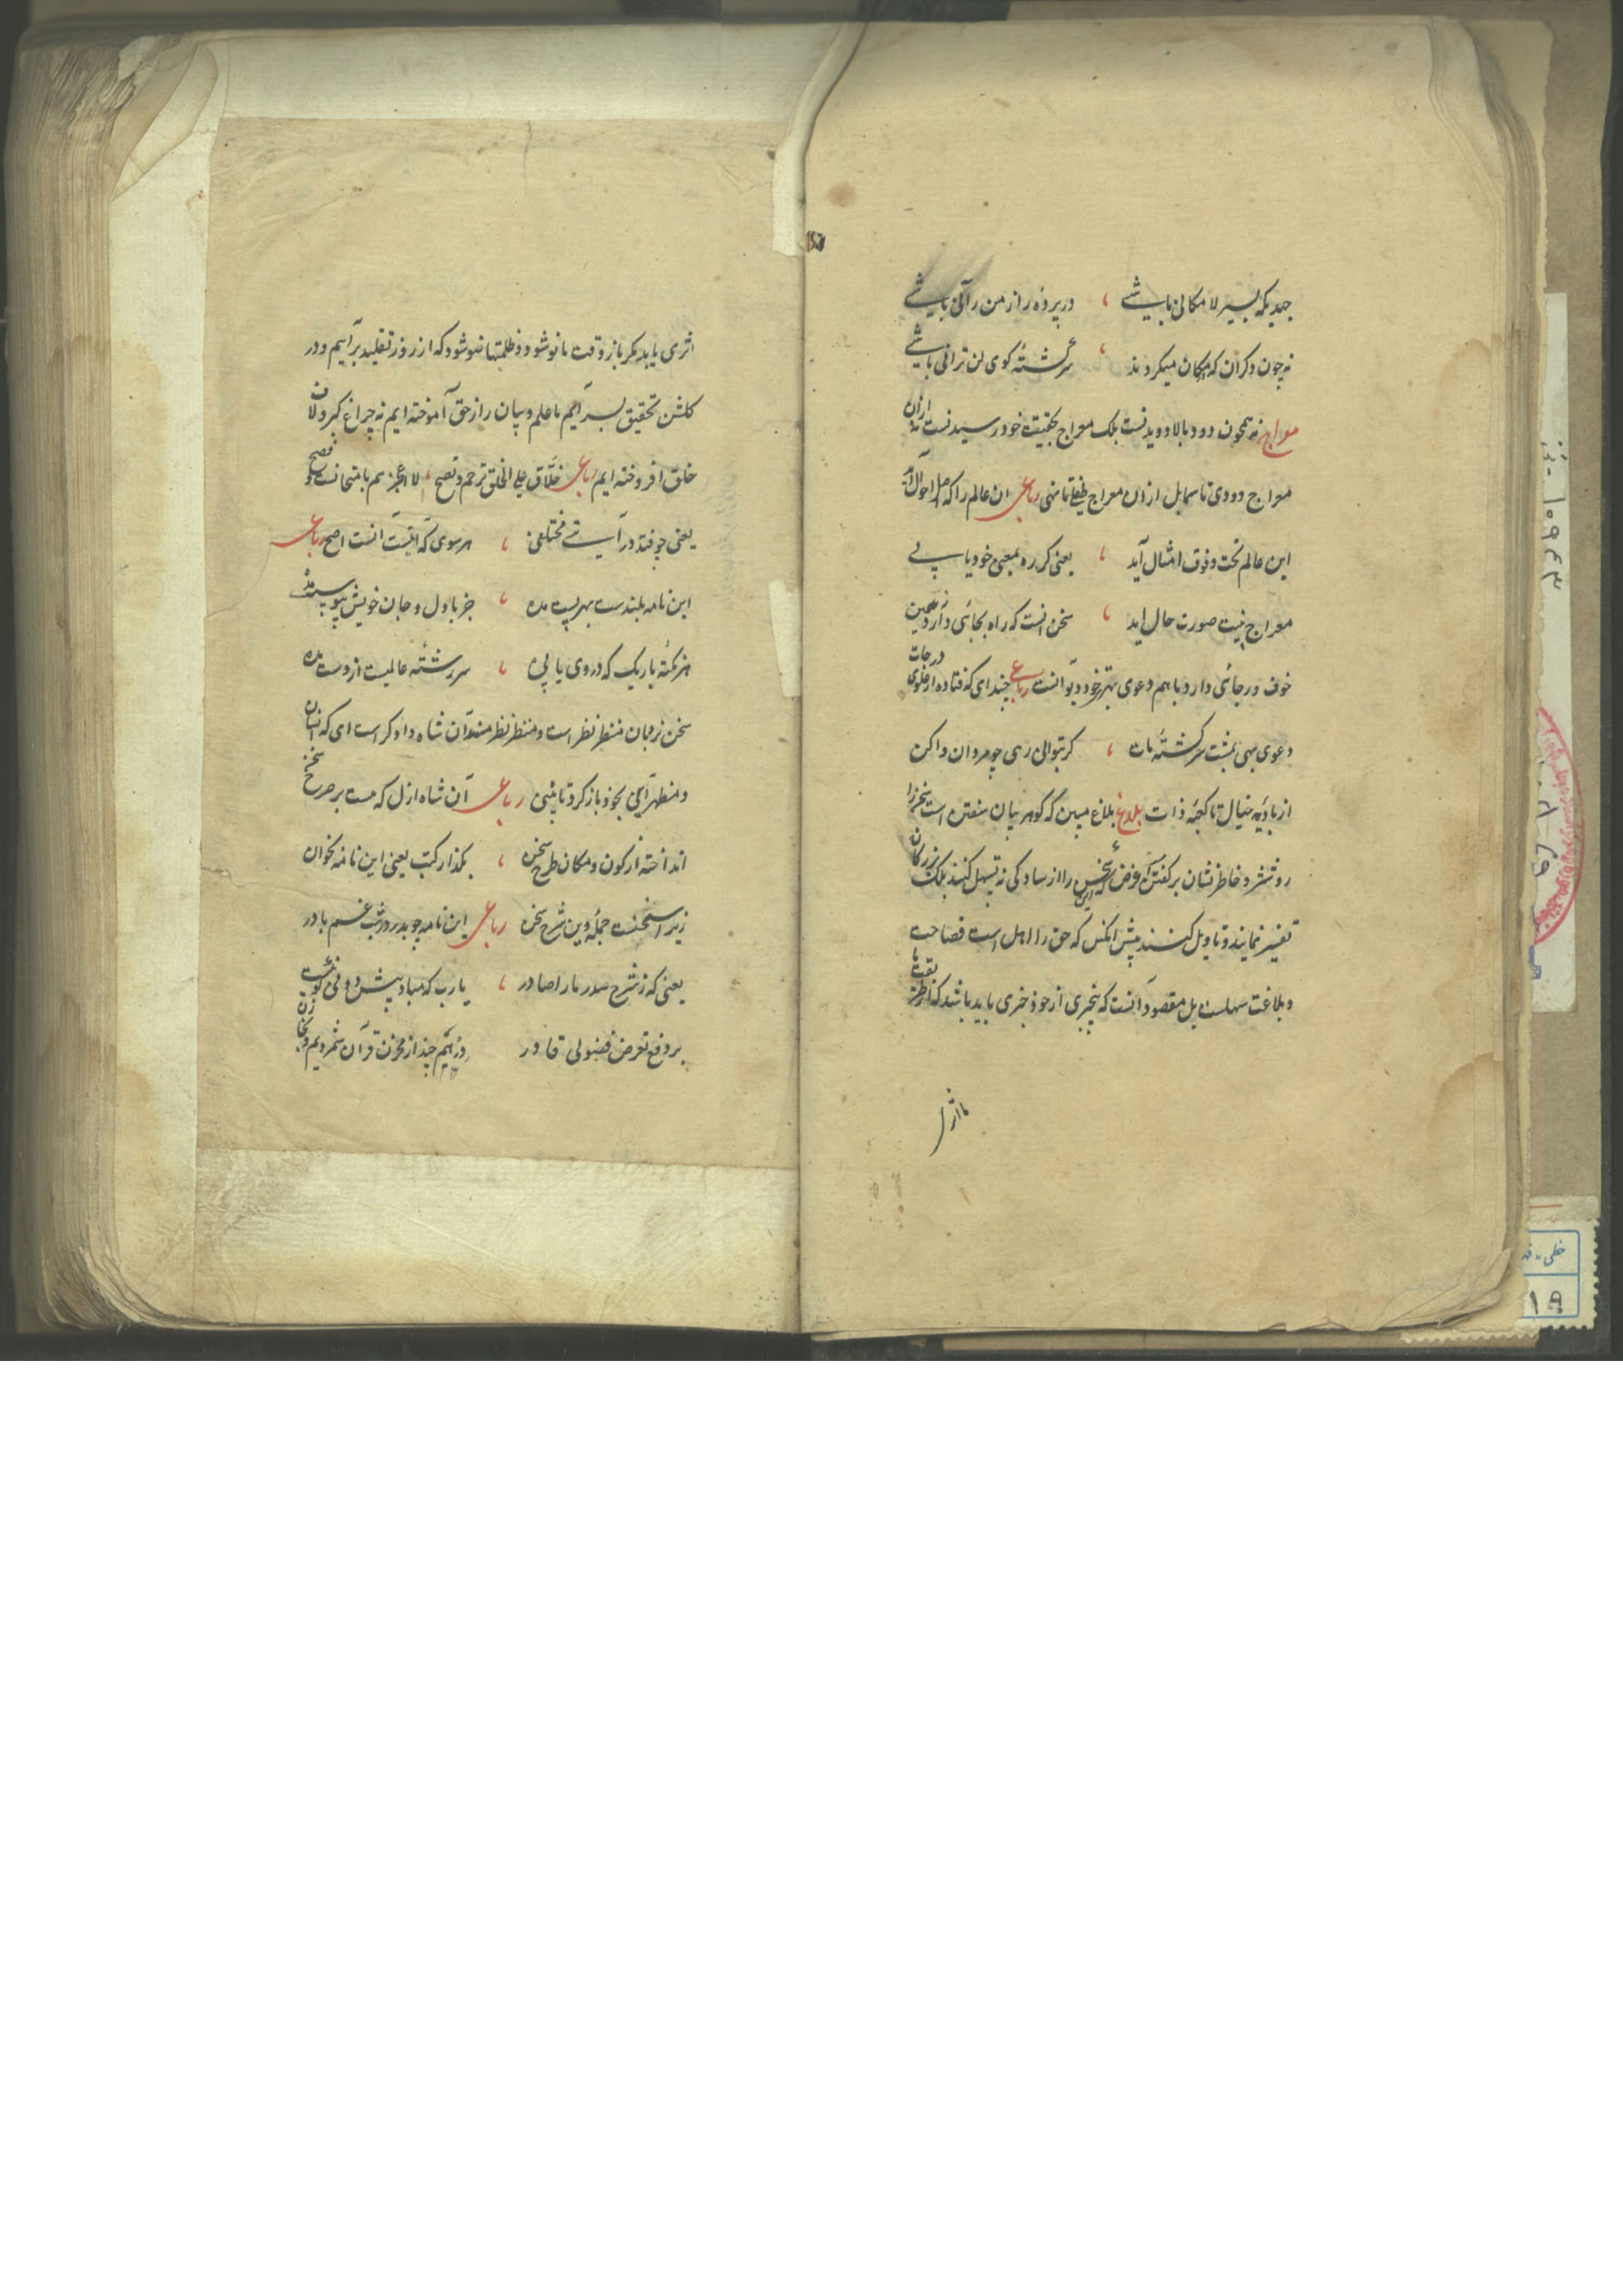 جهدیکه بسیر لامکانی باشی ، در پرده راز من رآنی باشی
نه چون دکران که در مکان میکردند ، سرکشتهٔ کوی لن ترانی باشی
معراج نه همچون دود ببالا دویدنست بلکه معراج بحقیقت خود رسیدنست نه ازان
معراج دودی تا سما بل ازان معراج رباعی ان عالم را که اصل احوال آمد
این عالم تحت و فوق امثال آید ، یعنی کر ره بمعنی خود یابی
معراج صورت حال اید ، سخن انست که راه بجائی دارد نه همین
خوف و رجائی دارد با هم دعوی خود انست رباعی چندای که فتاده از علوی درجات
دعوی بهی سرکشتهٔ مات ، کر بتوانی رهی چو مردان واکن
از بادیهٔ خیال تا کعبهٔ ذات بلاغ بلاغ مبین که کوهر بیان سفتن است سخن را
روشنتر و خاطر نشان بر کفتن است غرض که این سخن را از سادکی نه تسهیل کنند بلکه بزرکان
تفسیر نمایند و تاویل کنند پیش انکس که حق را اهل است فصاحت
و بلاغت سهلست بل مقصود آنست که بیخبری از خود خبری یابد باشد که از طرز
ما اثر
اثری یابد مکر باز وقت ما نو شود و ظلمتها ضو شود که از روز تقلید برآییم و در
کلشن تحقیق بسراییم ما علم و بیان را از حق آموخته ایم نه چراغ کبر و لاف
خلق افروخته ایم رباعی خلاق علی الخلق ترحم و تصح ، لا اعجزهم بامتحانست و فصح
یعنی چو فتد در آیتی مختلفی ، هر سوی که اینست آنست اصح رباعی
این نامه بلندست بهر پست مده ، جز با دل و جان خویش پیوست مده
هر نکتهٔ باریک که در وی یابی ، سررشتهٔ عالمیست از دست مده
سخن نردبان منظر نظر است و منتظر نظر مند آن شاه دادکر است ای که انسان
و منظر آیی بخود باز کرد تا بینی رباعی آن شاه ازل که هست بر صرح سخن
انداخته از کون و مکان طرح سخن ، بکذار کتب یعنی این نامه بخوان
زیرا سخنست جمله وین شرح سخن رباعی این نامه چو بدر در شب غم بادر
یعنی که ز شرح صدر ما را صادر ، یا رب که مباد پیش
بر دفع تعرض فضولی قادر دُر یتیم چند از مخزن قرآن شمردیم و